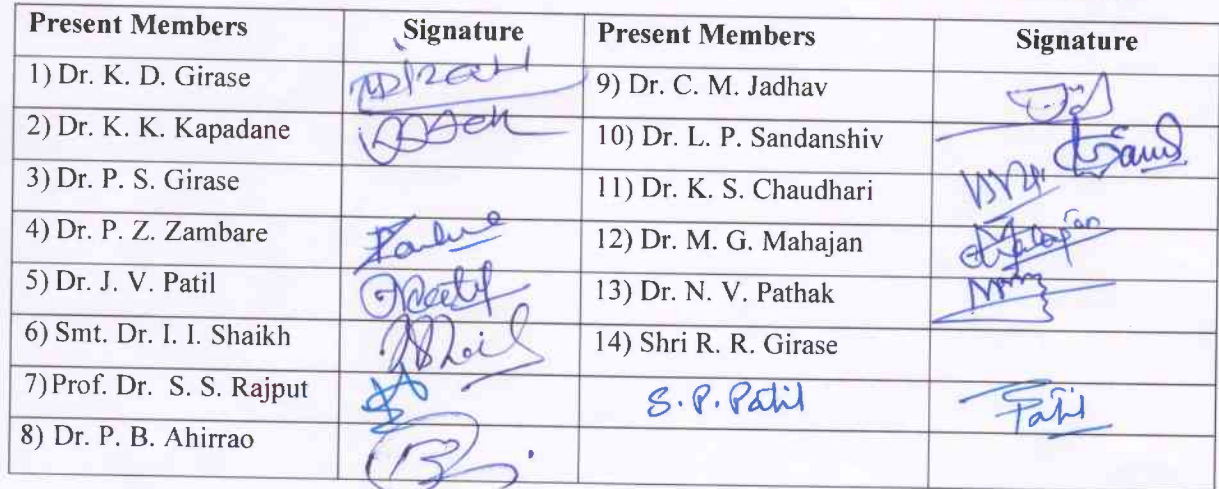 Present Members Signature Present Members Signature
1) Dr. K. D. Girase 9) Dr. C. M. Jadhav
2) Dr. K. K. Kapadane 10) Dr. L. P. Sandanshiv
3) Dr. P. S. Girase 11) Dr. K. S. Chaudhari
4) Dr. P. Z. Zambare 12) Dr. M. G. Mahajan
5) Dr. J. V. Patil 13) Dr. N. V. Pathak
6) Smt. Dr. I. I. Shaikh 14) Shri R. R. Girase
7) Prof. Dr. S. S. Rajput S. P. Patil Patil
8) Dr. P. B. Ahirrao